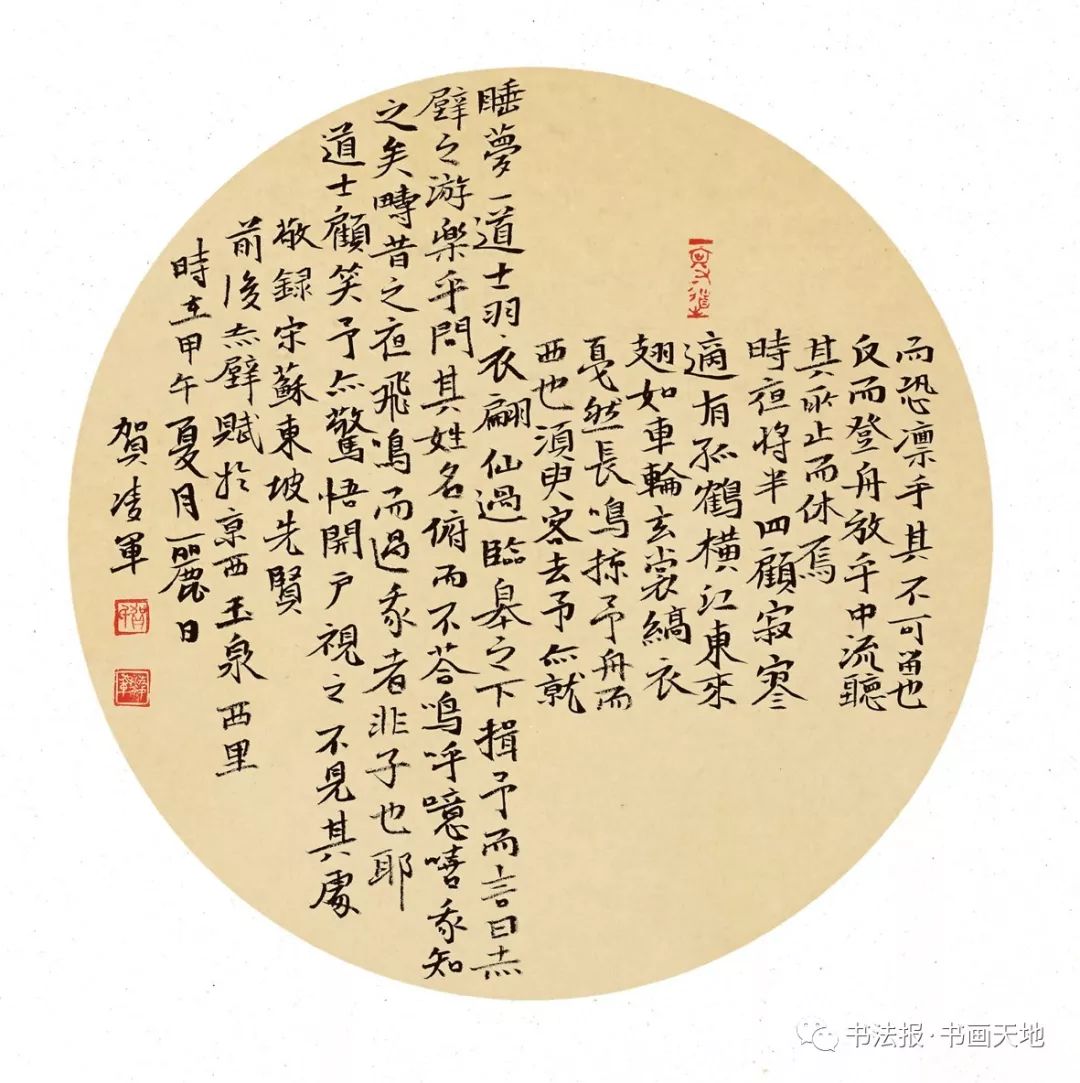 而恐凛乎其不可留也
反而登舟放乎中流聽
其所止而休焉
時夜将半四顧寂寥
適有孤鶴横江東來
翅如車輪玄裳縞衣
戛然長鳴掠予舟而
西也須臾客去予亦就
睡夢一道士羽衣翩仙過臨皋之下揖予而言曰赤
壁之游樂乎問其姓名俯而不荅嗚呼噫嘻我知
之矣疇昔之夜飛鳴而過我者非子也耶
道士顧笑予亦驚悟開户視之不見其處
敬録宋蘇東坡先賢
前後赤壁賦於京西玉泉西里
時在甲午夏月麗日
賀凌軍
书法报·书画天地